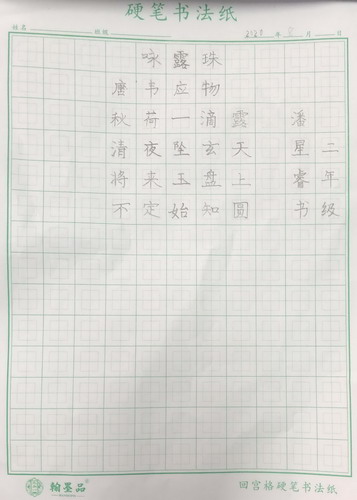 硬笔书法纸
姓名 班级 年 月 日
咏露珠
唐韦应物
秋荷一滴露
清夜坠玄天
将来玉盘上
不定始知圆
二年级
潘星睿书
翰墨品®
回宫格硬笔书法纸